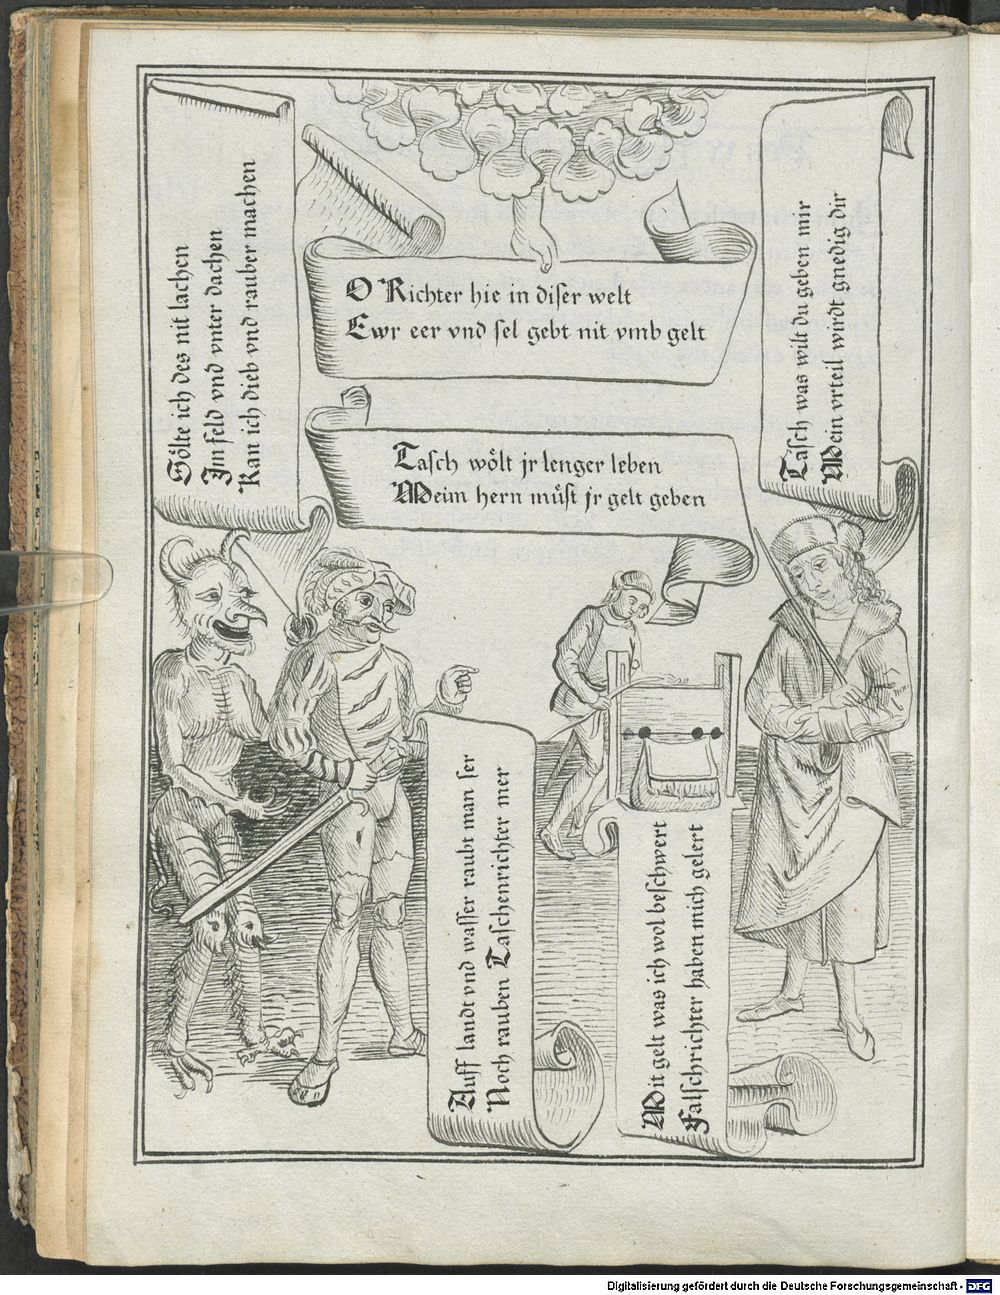 Sölte ich des nit lachen
Im feld vnd vnter dachen
Kan ich dieb vnd rauber machen
O Richter hie in diser welt
Ewr eer vnd sel gebt nit vmb gelt
Tasch was wilt du geben mir
Mein vrteil wirdt gnedig dir
Tasch wölt jr lenger leben
Meim hern müst jr gelt geben
Auff landt vnd wasser raubt man ser
Noch rauben Taschenrichter mer
Mit gelt was ich wol beschwert
Falschrichter haben mich gelert
Digitalisierung gefördert durch die Deutsche Forschungsgemeinschaft - DFG